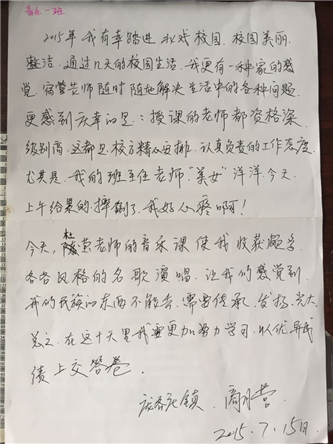 音乐一班
2015年我有幸踏进 北戏校园.校园美丽.
整洁.通过几天的校园生活.我更有一种家的感
觉.宿管老师随时随地解决生活中的各种问题.
更感到庆幸的是:授课的老师都资格深
级别高.这都是校方精心安排.认真负责的工作态度.
尤其是.我的班主任老师"美女"洋洋今天
上午给累的摔倒了.我好心疼啊!
今天,老师的音乐课使我收获
各各风格的名歌演唱.让我的感觉到
我的民族的东西不能丢.需要传承.发扬.光大.
总之.在这十天里我要更加努力学习.以优异成
绩上交答卷.
镇
2015.7.15日.